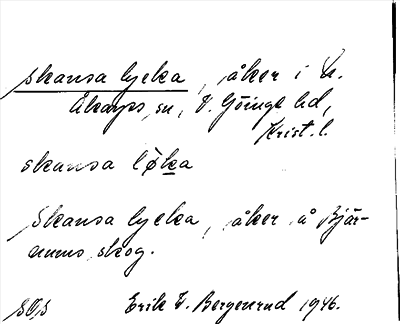 skansa lycka, åker i N.
Åkarps sn, V. Göinge hd,
Krist. l.
skansa løka
Skansa lycka, åker å Bjär-
nums skog.
Erik V. Bergenrud 1946.